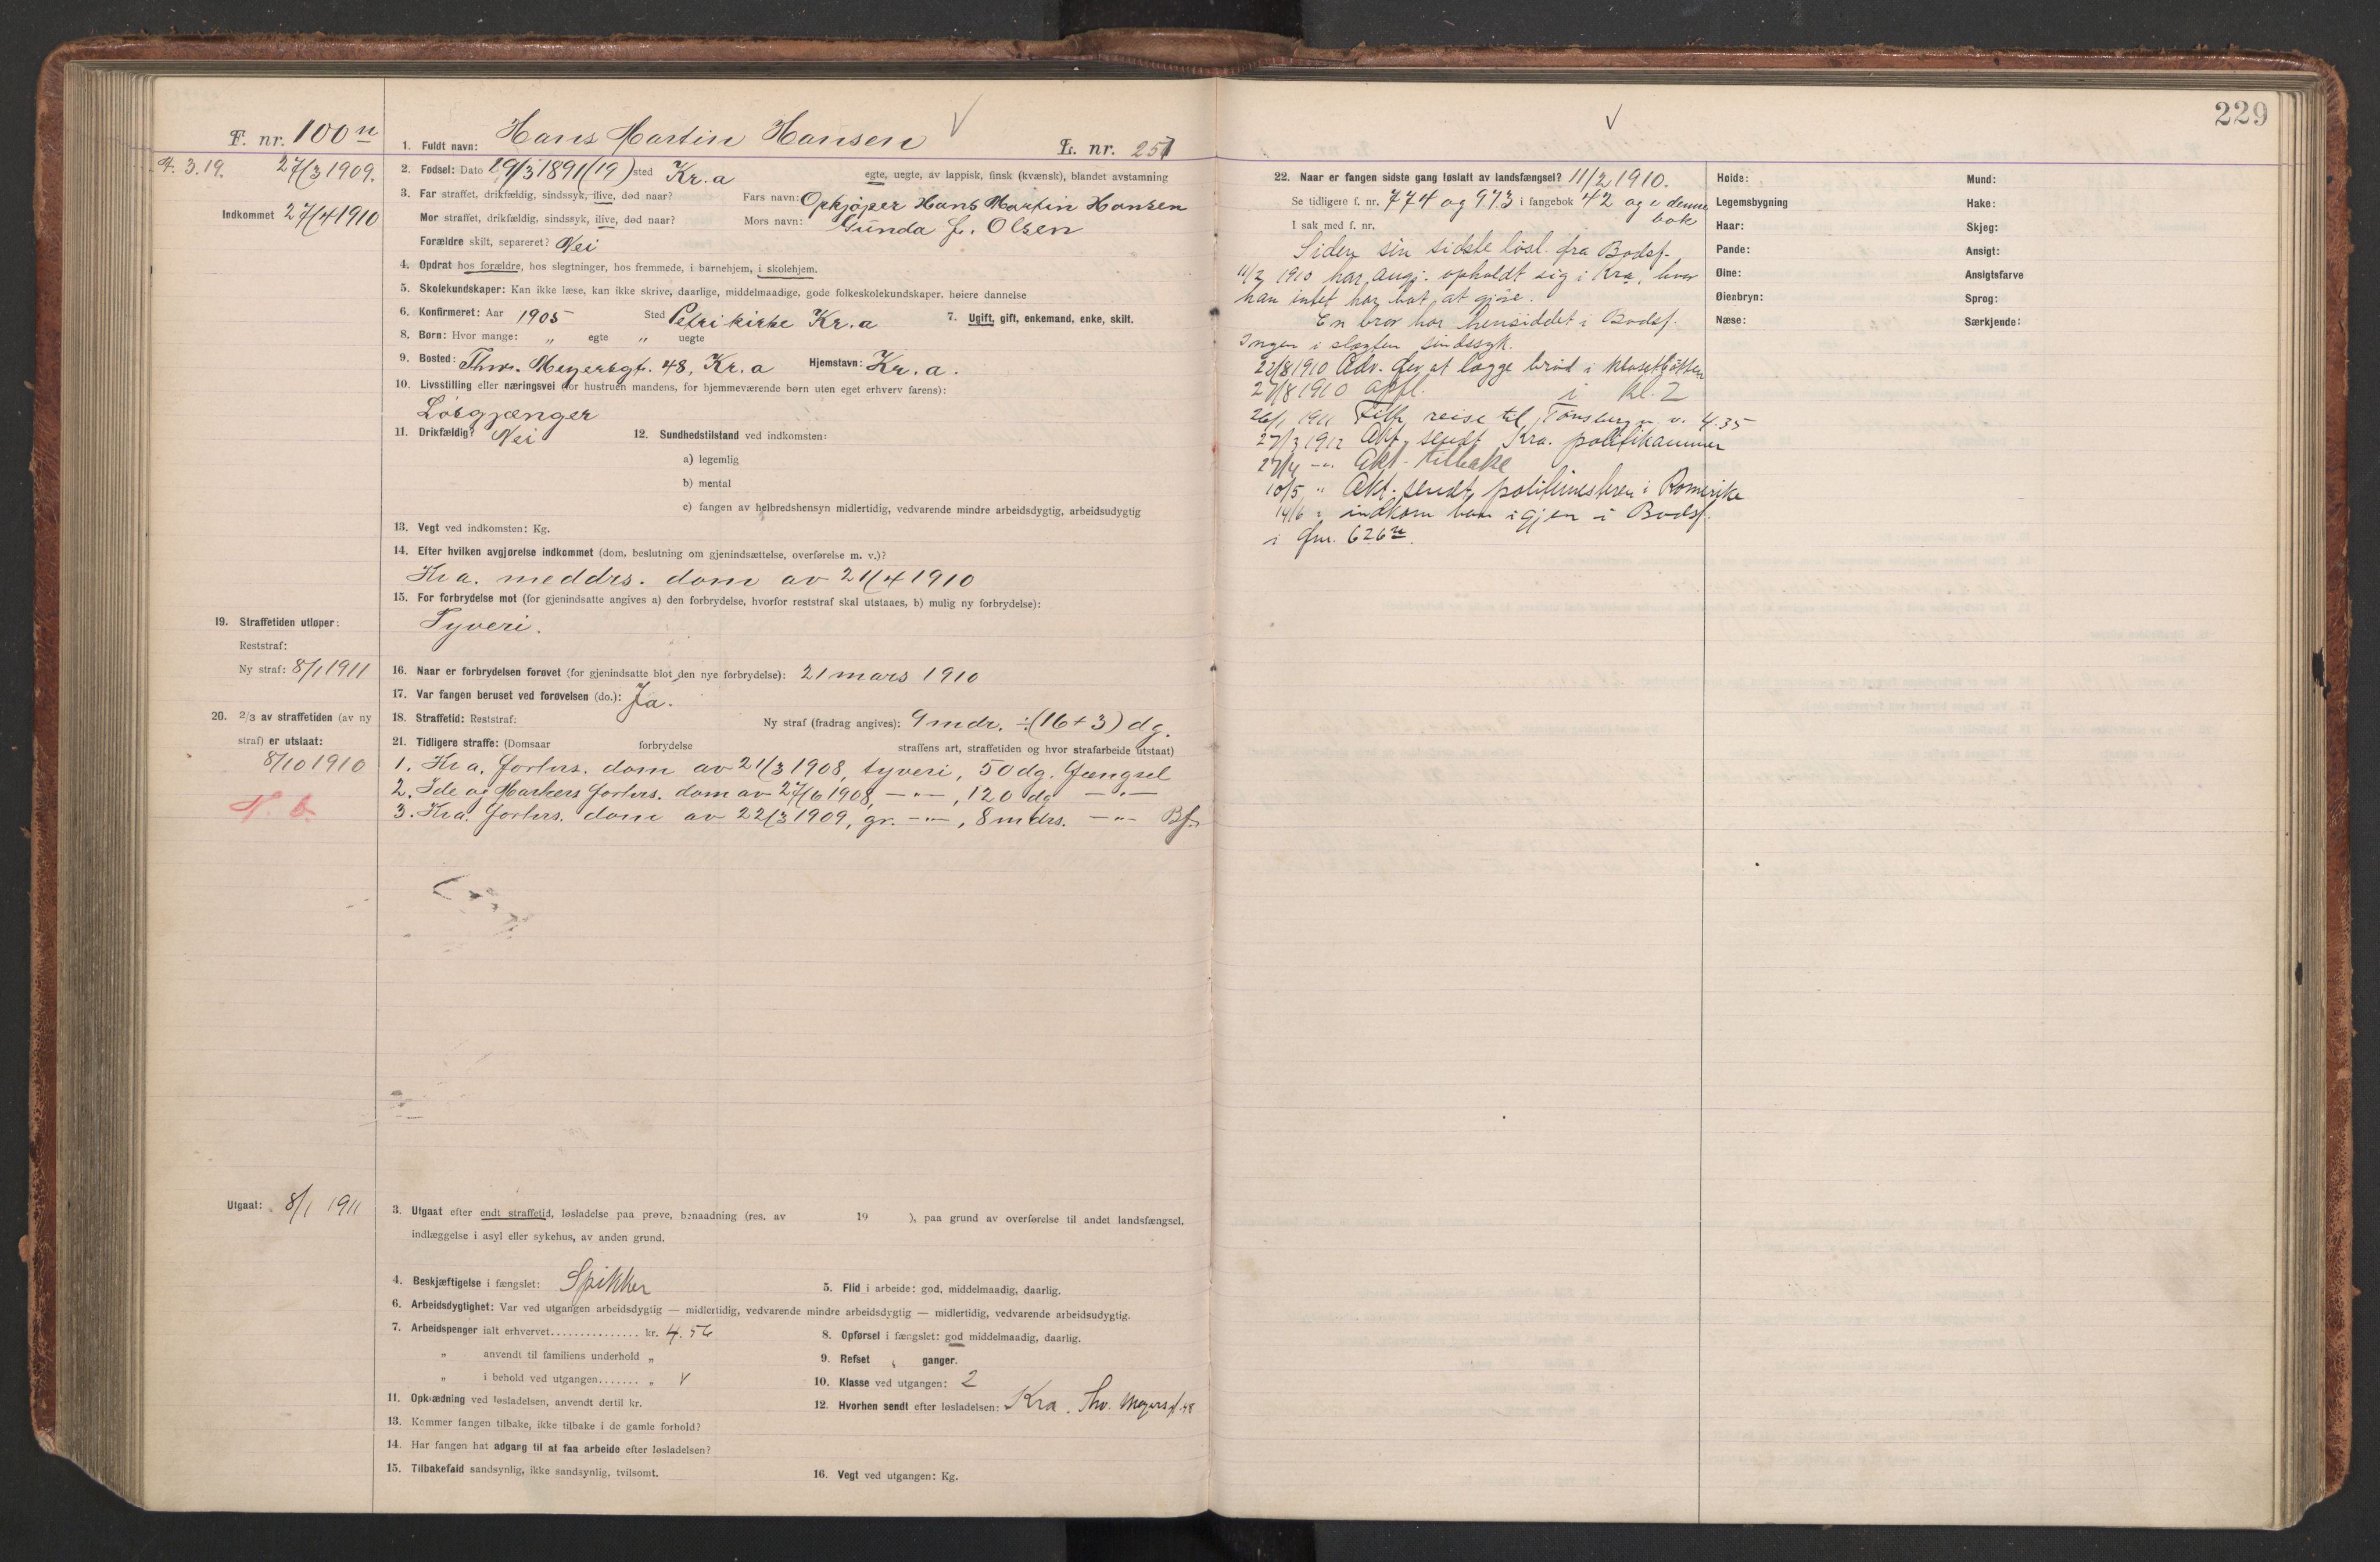 F. nr. 100 n
1. Fuldt navn: Hans Martin Hansen
L. nr. 251
4. 3. 19. 27/3 1909.
Indkommet 27/4 1910
2. Fødsel: Dato 29/3 1891 (19) sted Kr.a egte, uegte, av lappisk, finsk (kvænsk), blandet avstamning
3. Far straffet, drikfældig, sindssyk, ilive, død naar? Fars navn: Opkjøper Hans Martin Hansen
Mor straffet, drikfældig, sindssyk, ilive, død naar? Mors navn: Gunda f. Olsen
Forældre skilt, separeret? Nei
4. Opdrat hos forældre, hos slegtninger, hos fremmede, i barnehjem, i skolehjem.
5. Skolekundskaper: Kan ikke læse, kan ikke skrive, daarlige, middelmaadige, gode folkeskolekundskaper, høiere dannelse
6. Konfirmeret: Aar 1905 Sted Petri kirke Kr.a 7. Ugift, gift, enkemand, enke, skilt.
8. Børn: Hvor mange: „ egte „ uegte
9. Bosted: Thv. Meyersgt. 48, Kr.a Hjemstavn: Kr.a.
10. Livsstilling eller næringsvei (for hustruen mandens, for hjemmeværende børn uten eget erhverv farens):
Løsgjænger
11. Drikfældig? Nei 12. Sundhedstilstand ved indkomsten:
a) legemlig
b) mental
c) fangen av helbredshensyn midlertidig, vedvarende mindre arbeidsdygtig, arbeidsudygtig
13. Vegt ved indkomsten: Kg.
14. Efter hvilken avgjørelse indkommet (dom, beslutning om gjenindsættelse, overførelse m. v.)?
Kr a. meddrs. dom av 21/4 1910
15. For forbrydelse mot (for gjenindsatte angives a) den forbrydelse, hvorfor reststraf skal utstaaes, b) mulig ny forbrydelse):
Tyveri.
19. Straffetiden utløper:
Reststraf:
Ny straf: 8/1 1911
16. Naar er forbrydelsen forøvet (for gjenindsatte blot den nye forbrydelse): 21 mars 1910
17. Var fangen beruset ved forøvelsen (do.): Ja.
20. 2/3 av straffetiden (av ny straf) er utstaat:
8/10 1910
N. b.
18. Straffetid: Reststraf: Ny straf (fradrag angives): 9 mdr. ÷ (16 + 3) dg.
21. Tidligere straffe: (Domsaar forbrydelse straffens art, straffetiden og hvor strafarbeide utstaat)
1. Kr a. forhrs. dom av 21/3 1908, tyveri, 50 dg. fængsel
2. Ide og Markers forhrs. dom av 27/6 1908, —"—, 120 dg —"—
3. Kr a. forhrs. dom av 22/3 1909, gr. —"—, 8 mdrs. —"— Bf.
Utgaat: 8/1 1911
3. Utgaat efter endt straffetid, løsladelse paa prøve, benaadning (res. av 19 ), paa grund av overførelse til andet landsfængsel,
indlæggelse i asyl eller sykehus, av anden grund.
4. Beskjæftigelse i fængslet: Spikker 5. Flid i arbeide: god, middelmaadig, daarlig.
6. Arbeidsdygtighet: Var ved utgangen arbeidsdygtig — midlertidig, vedvarende mindre arbeidsdygtig — midlertidig, vedvarende arbeidsudygtig.
7. Arbeidspenger ialt erhvervet............... kr. 4.56 8. Opførsel i fængslet: god middelmaadig, daarlig.
„ anvendt til familiens underhold „ 9. Refset ganger.
„ i behold ved utgangen....... „ 10. Klasse ved utgangen: 2
11. Opklædning ved løsladelsen, anvendt dertil kr. 12. Hvorhen sendt efter løsladelsen: Kra. Thv. Meyersgt. 48
13. Kommer fangen tilbake, ikke tilbake i de gamle forhold?
14. Har fangen hat adgang til at faa arbeide efter løsladelsen?
15. Tilbakefald sandsynlig, ikke sandsynlig, tvilsomt. 16. Vegt ved utgangen: Kg.
229
22. Naar er fangen sidste gang løslatt av landsfængsel? 11/2 1910.
Se tidligere f. nr. 774 og 973 i fangebok 42 og i denne
I sak med f. nr. bok
Siden sin sidste løsl. fra Bodsf.
11/2 1910 har angj. opholdt sig i Kra, hvor
han intet har hat at gjøre.
En bror har hensiddet i Bodsf.
Ingen i slegten sindssyk.
22/8 1910 Adv. for at lægge brød i klosetbøtten
27/8 1910 opfl. i kl. 2
26/1 1911 reise til Tønsberg 4.35
27/3 1912 Akt. sendt Kra. politikammer
27/4 —"— Akt. tilbake
10/5 " Akt. sendt politimesteren i Romerike
14/6 " indkom han igjen i Bodsf.
i fnr. 626 n.
Høide: Mund:
Legemsbygning Hake:
Haar: Skjeg:
Pande: Ansigt:
Øine: Ansigtsfarve
Øienbryn: Sprog:
Næse: Særkjende: